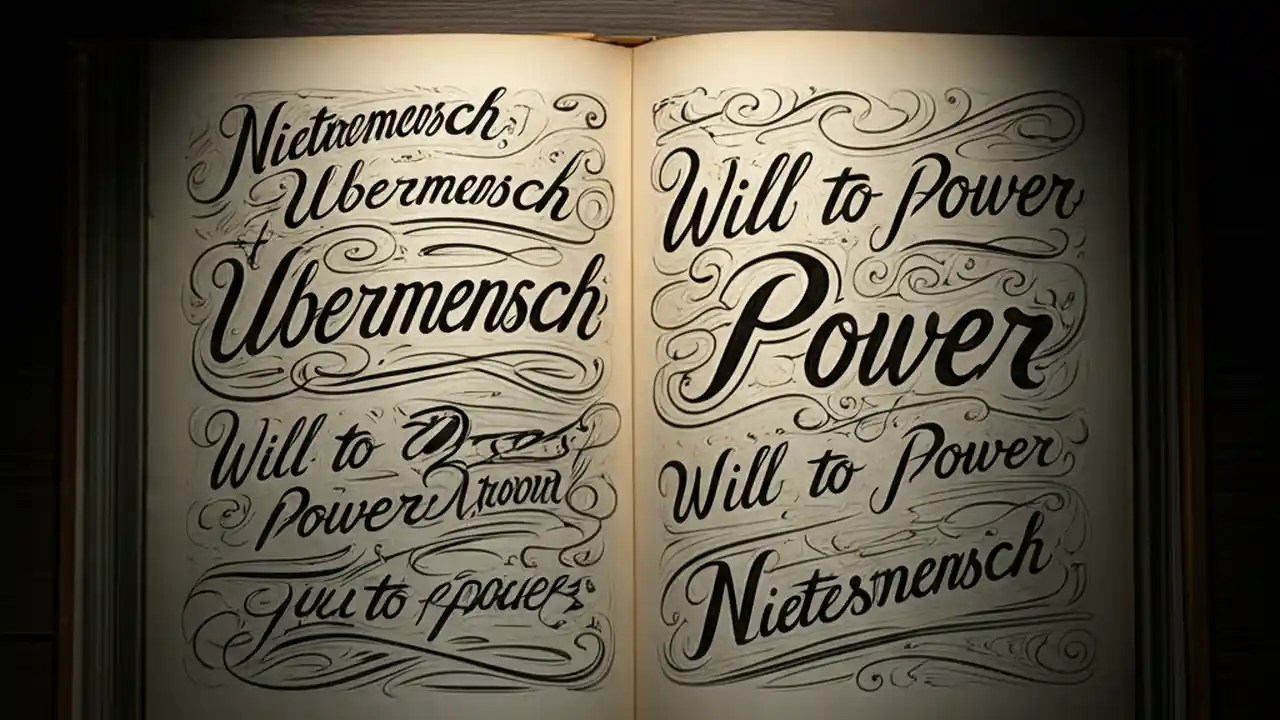 Nietnemensch
Ubermensch
Ubermensch
Will to
Power
Will to Power
Power
Will to Power
Nietesmensch